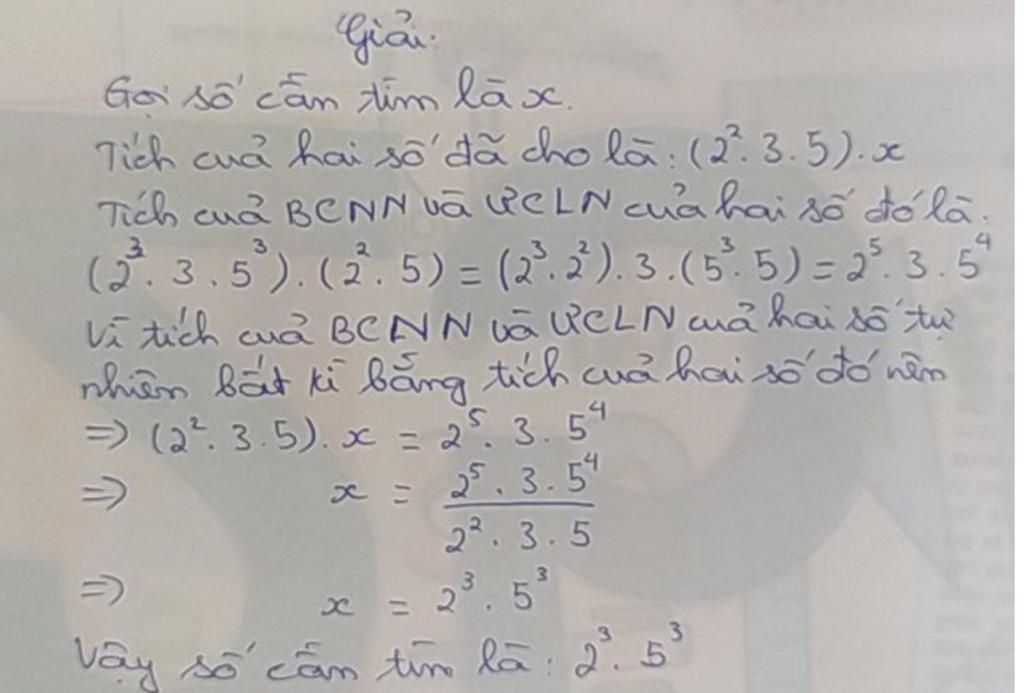 Giải:
Gọi số cần tìm là x.
Tích của hai số đã cho là: (2². 3. 5). x
Tích của BCNN và ƯCLN của hai số đó là:
(2³. 3. 5³). (2². 5) = (2³. 2²). 3. (5³. 5) = 2⁵. 3. 5⁴
Vì tích của BCNN và ƯCLN của hai số tự
nhiên bất kì bằng tích của hai số đó nên
=> (2². 3. 5). x = 2⁵. 3. 5⁴
=> x = 2⁵. 3. 5⁴ / 2². 3. 5
=> x = 2³. 5³
Vậy số cần tìm là: 2³. 5³